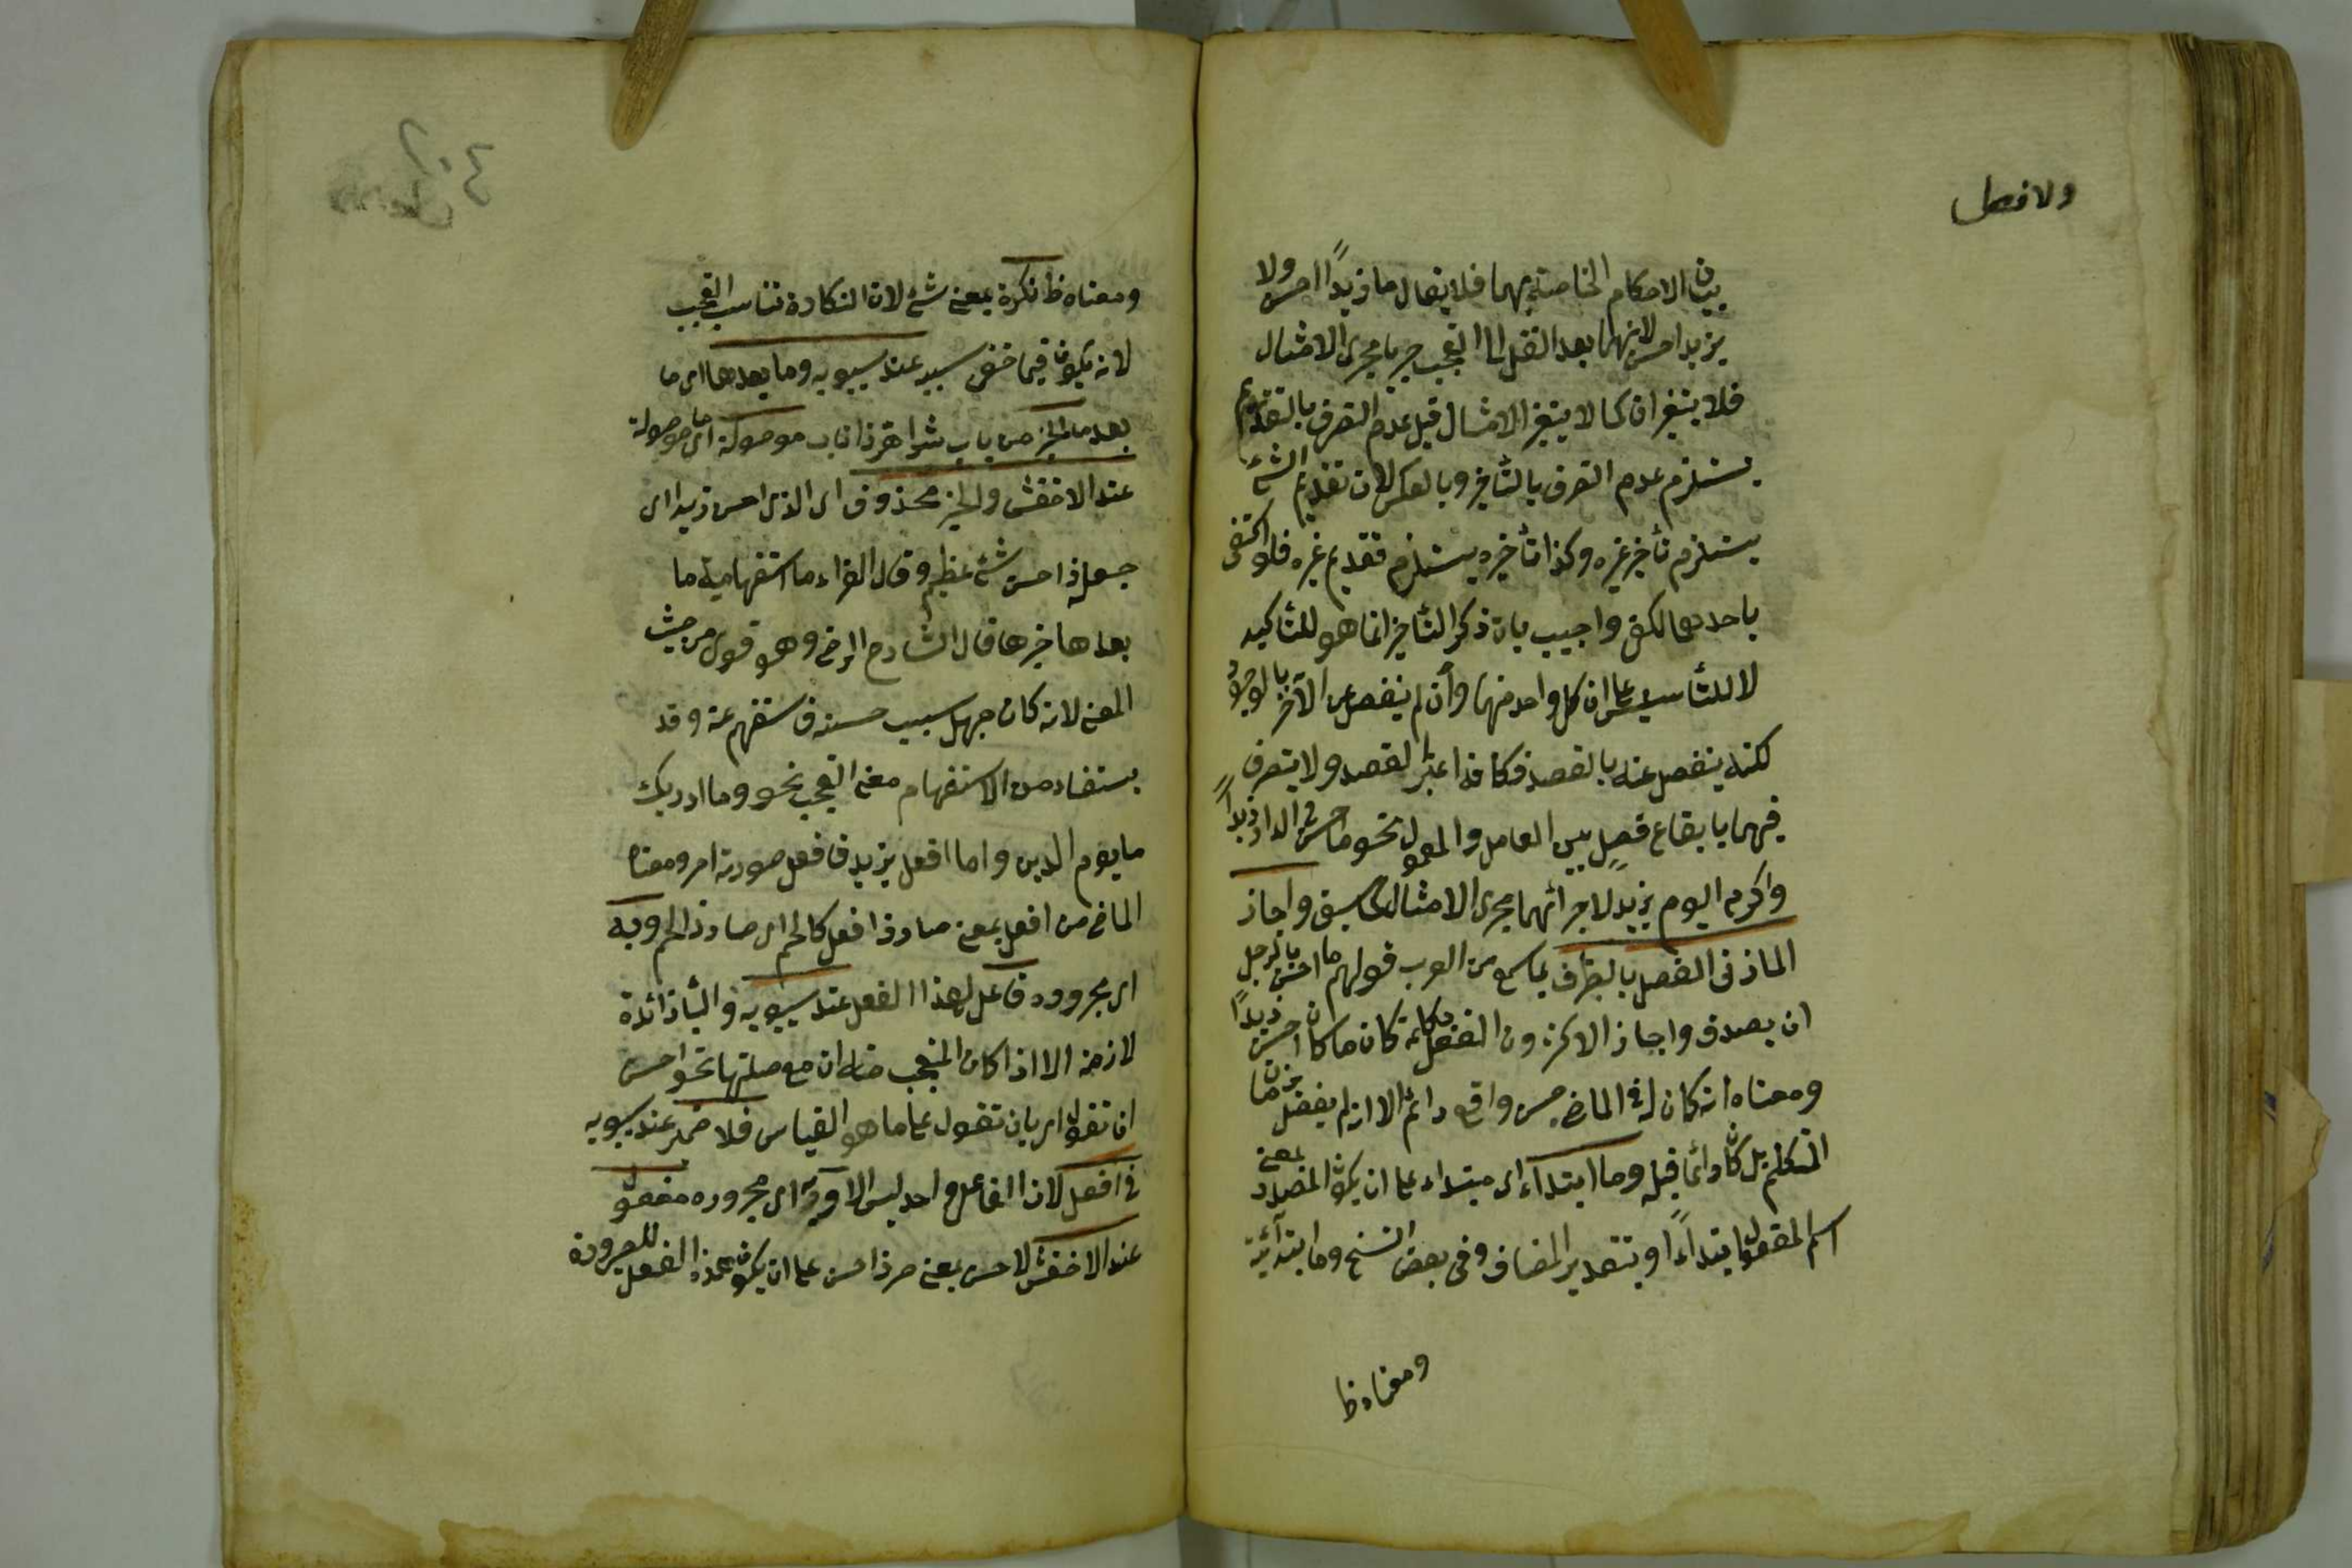 ولا فصل
بيان الاحكام الخاصة بهما فلا يقال ما زيدًا احسن ولا
بزيد احسن لانهما بعد النقل الى التعجب جريا مجرى الامثال
فلا يتغيران كما لا يتغير الامثال قيل عدم التصرف بالتقديم
يستلزم عدم التصرف بالتأخير وبالعكس لان تقديم الشئ
يستلزم تأخير غيره وكذا تأخيره يستلزم تقديم غيره فلو اكتفى
باحدهما لكفى واجيب بان ذكر التأخير انما هو للتأكيد
لا للتأسيس على ان كل واحد منهما وان لم ينفصل عن الآخر بالوجود
لكنه ينفصل عنه بالقصد فكانه اعتبر القصد ولا يتصرف
فيهما بايقاع فصل بين العامل والمعمول نحو ما احسن فى الدار زيدًا
واكرم اليوم بزيد لاجرائهما مجرى الامثال كما سبق واجاز
المازنى الفصل بالظرف لما سمع من العرب قولهم ما احسن بالرجل
ان يصدق واجاز الاكثرون الفصل بكلمة كان ما كان احسن زيدًا
ومعناه انه كان له فى الماضى حسن واقع دائم الا انه لم يتصل بزمان
المتكلم بل كان دائما قبله وما ابتداء اى مبتداء على ان يكون المصدر بمعنى
اسم المفعول ابتداءً او بتقدير المضاف وفى بعض النسخ وما ابتدائية
ومعناه ظ
٤٠٢
ومعناه ظ نكرة بمعنى شئ لان النكارة تناسب التعجب
لانه يكون فيما خفى سببه عند سيبويه وما بعدها اى ما
بعد ما الخبر من باب شر اهر ذا ناب موصولة اى ما موصولة
عند الاخفش والخبر محذوف اى الذى احسن زيدا اى
جعله ذا حسن شئ عظيم وقال الفراء ما استفهامية ما
بعدها خبرها قال الشارح الرضى وهو قوى من حيث
المعنى لانه كان جهل سبب حسنه فاستفهم عنه وقد
يستفاد من الاستفهام معنى التعجب نحو وما ادريك
ما يوم الدين واما افعل بزيد فافعل صورته امر ومعناه
الماضى من افعل بمعنى صار ذا فعل كالحم اى صار ذا لحم وبه
اى مجروره فاعل لهذا الفعل عند سيبويه والباء زائدة
لازمة الا اذا كان المتعجب منه ان مع صلتها نحو احسن
ان تقول اى بان تقول على ما هو القياس فلا ضمير عند سيبويه
فى افعل لان الفاعل واحد ليس الا وبه اى مجروره مفعول
عند الاخفش لاحسن بمعنى صر ذا حسن على ان يكون همزة الفعل للصيرورة